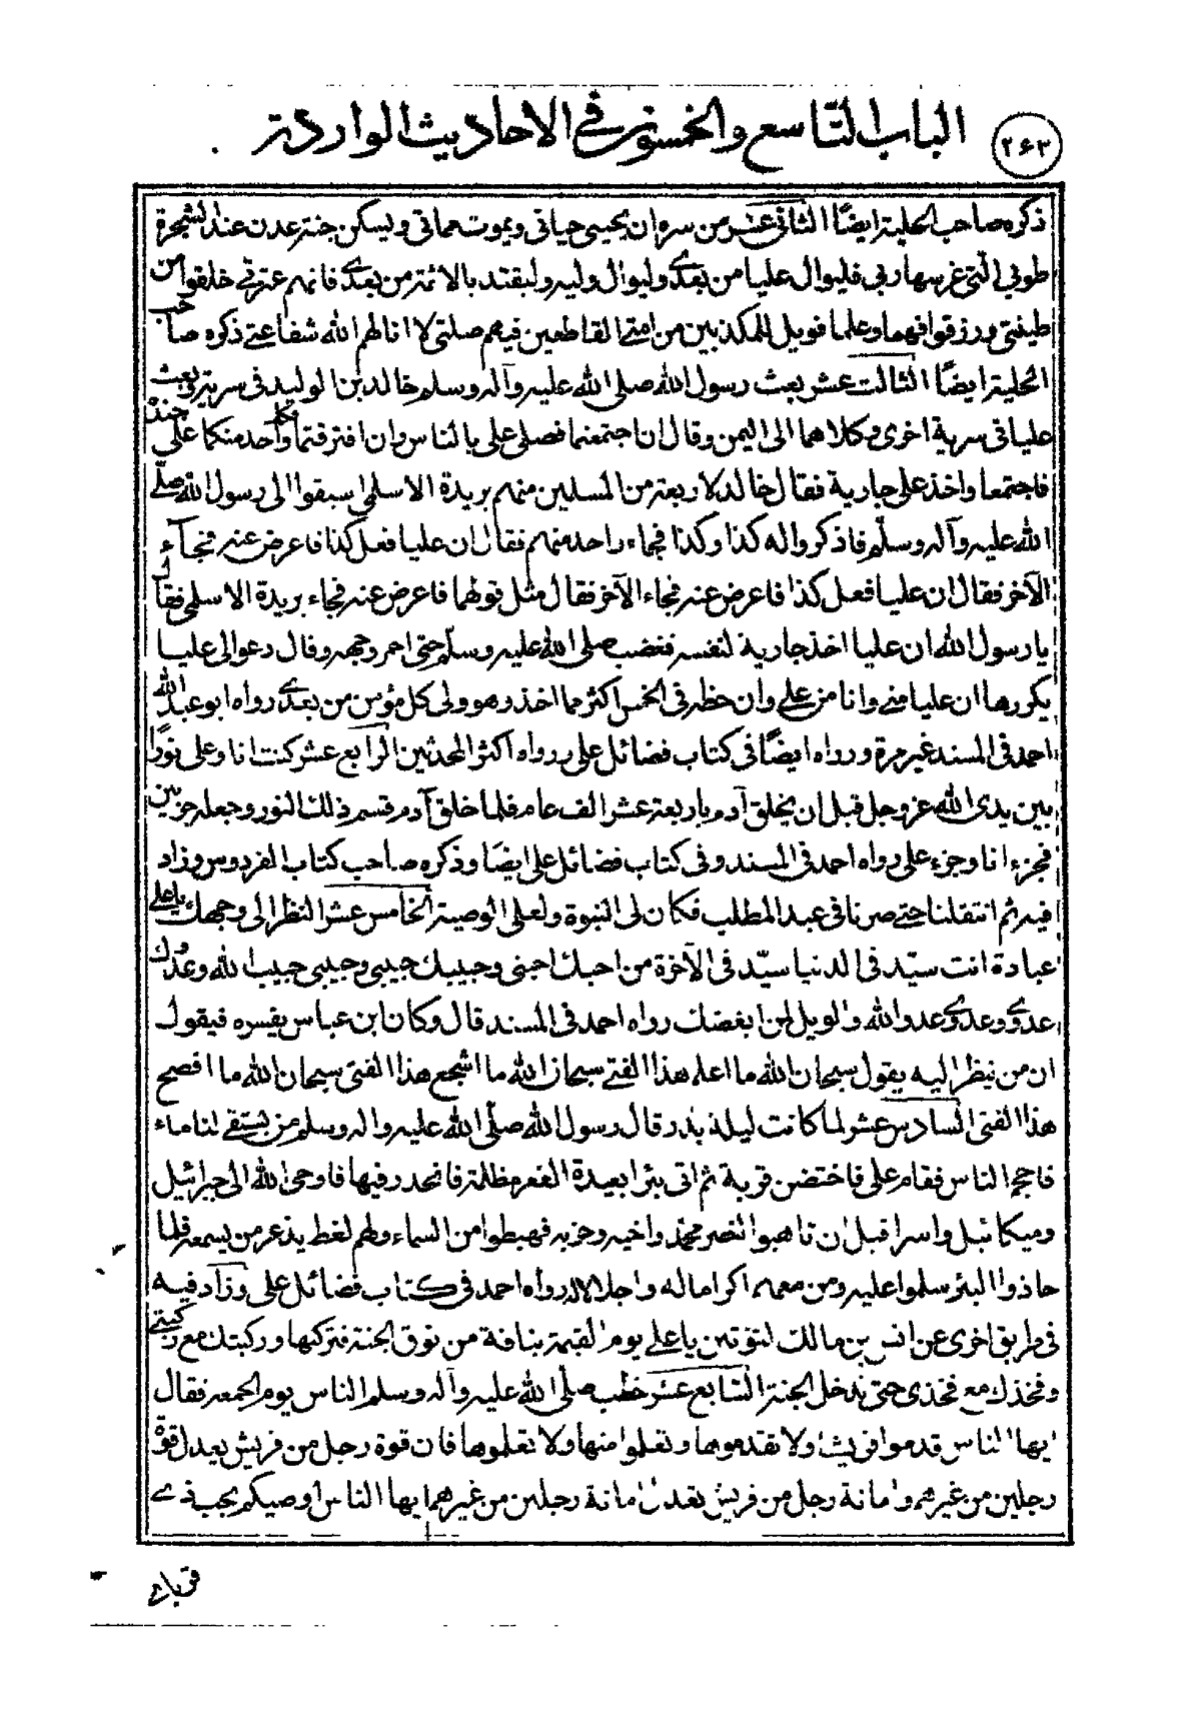 الباب التاسع والخمسون في الاحاديث الواردة
٢٤٢
ذكره صاحب الحلية ايضًا الثاني عشر من سره ان يحيى حياتي ويموت مماتي ويسكن جنة عدن عند الشجرة
طوبي الّتي غرسها ربي فليوال عليا من بعدي وليوال وليه وليقتد بالائمة من بعدي فانهم عترتي خلقوا من
طينتي ورزقوا فهما وعلما فويل للمكذبين من امتي القاطعين فيهم صلتي لا انالهم الله شفاعتي ذكره صاحب
الحلية ايضًا الثالث عشر بعث رسول الله صلى الله عليه وآله وسلم خالد بن الوليد في سرية وبعث
عليا في سرية اخرى وكلاهما الى اليمن وقال ان اجتمعتما فصلى علي بالناس وان افترقتما فكل واحد منكما على جنده
فاجتمعا واخذ علي جارية فقال خالد لاربعة من المسلمين منهم بريدة الاسلمي اسبقوا الى رسول الله صلّى
الله عليه وآله وسلّم فاذكروا له كذا وكذا فجاء واحد منهم فقال ان عليا فعل كذا فاعرض عنه فجآء
الآخر فقال ان عليا فعل كذا فاعرض عنه فجاء الآخر فقال مثل قولهما فاعرض عنه فجاء بريدة الاسلمي فقال
يا رسول الله ان عليا اخذ جارية لنفسه فغضب صلى الله عليه وسلّم حتى احمر وجهه وقال دعوا لي عليا
يكررها ان عليا مني وانا من علي وان حظه في الخمس اكثر مما اخذ وهو ولى كل مؤمن من بعدي رواه ابو عبد الله
احمد في المسند غير مرة ورواه ايضًا في كتاب فضائل علي ورواه اكثر المحدثين الرابع عشر كنت انا وعلي نورًا
بين يدى الله عز وجل قبل ان يخلق آدم باربعة عشر الف عام فلما خلق آدم قسم ذلك النور وجعله جزئين
فجزء انا وجزء علي رواه احمد في المسند وفي كتاب فضائل علي ايضا وذكره صاحب كتاب الفردوس وزاد
فيه ثم انتقلنا حتى صرنا في عبد المطلب فكان لى النبوة ولعلى الوصية الخامس عشر النظر الى وجهك يا علي
عبادة انت سيّد في الدنيا سيّد في الآخرة من احبك احبني وحبيبك حبيبي وحبيبي حبيب الله وعدوّك
عدوي وعدوي عدو الله والويل لمن ابغضك رواه احمد في المسند قال وكان ابن عباس يفسره فيقول
ان من ينظر اليه يقول سبحان الله ما اعلم هذا الفتى سبحان الله ما اشجع هذا الفتى سبحان الله ما افصح
هذا الفتى السادس عشر لما كانت ليلة بدر قال رسول الله صلّى الله عليه واله وسلم من يستقي لنا ماء
فاحجم الناس فقام علي فاحتضن قربة ثم اتى بئرا بعيدة القعر مظلمة فانحدر فيها فاوحى الله الى جبرائيل
وميكائيل واسرافيل ان تاهبوا لنصر محمد واخيه وحزبه فهبطوا من السماء ولهم لغط يذعر من يسمعه فلما
حاذوا البئر سلموا عليه ومن معهم اكراما له واجلالا رواه احمد في كتاب فضائل علي وزاد فيه
في طريق اخرى عن انس بن مالك لتؤتين يا علي يوم القيمة بناقة من نوق الجنة فتركبها وركبتك مع ركبتي
وفخذك مع فخذى حتى تدخل الجنة السابع عشر خطب صلى الله عليه وآله وسلم الناس يوم الجمعه فقال
ايها الناس قدموا قريشا ولا تقدموها وتعلموا منها ولا تعلموها فان قوة رجل من قريش يعدل قوّة
رجلين من غيرهم وامانة رجل من قريش تعدل امانة رجلين من غيرهم ايها الناس اوصيكم بحب ذي
قرباي